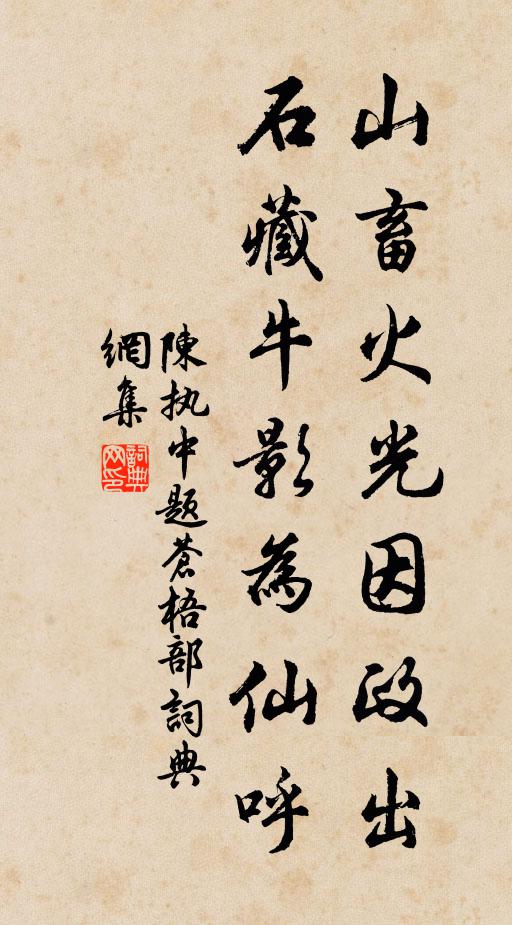 山畜火光因政出
石藏牛影為仙呼
陳执中题蒼梧部詞典
網集
詞典网印